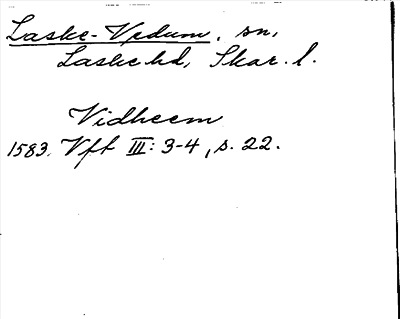 Laske-Vedum, sn,
Laske hd, Skar. l.
Vidheem
1583. Vft III: 3-4, s. 22.